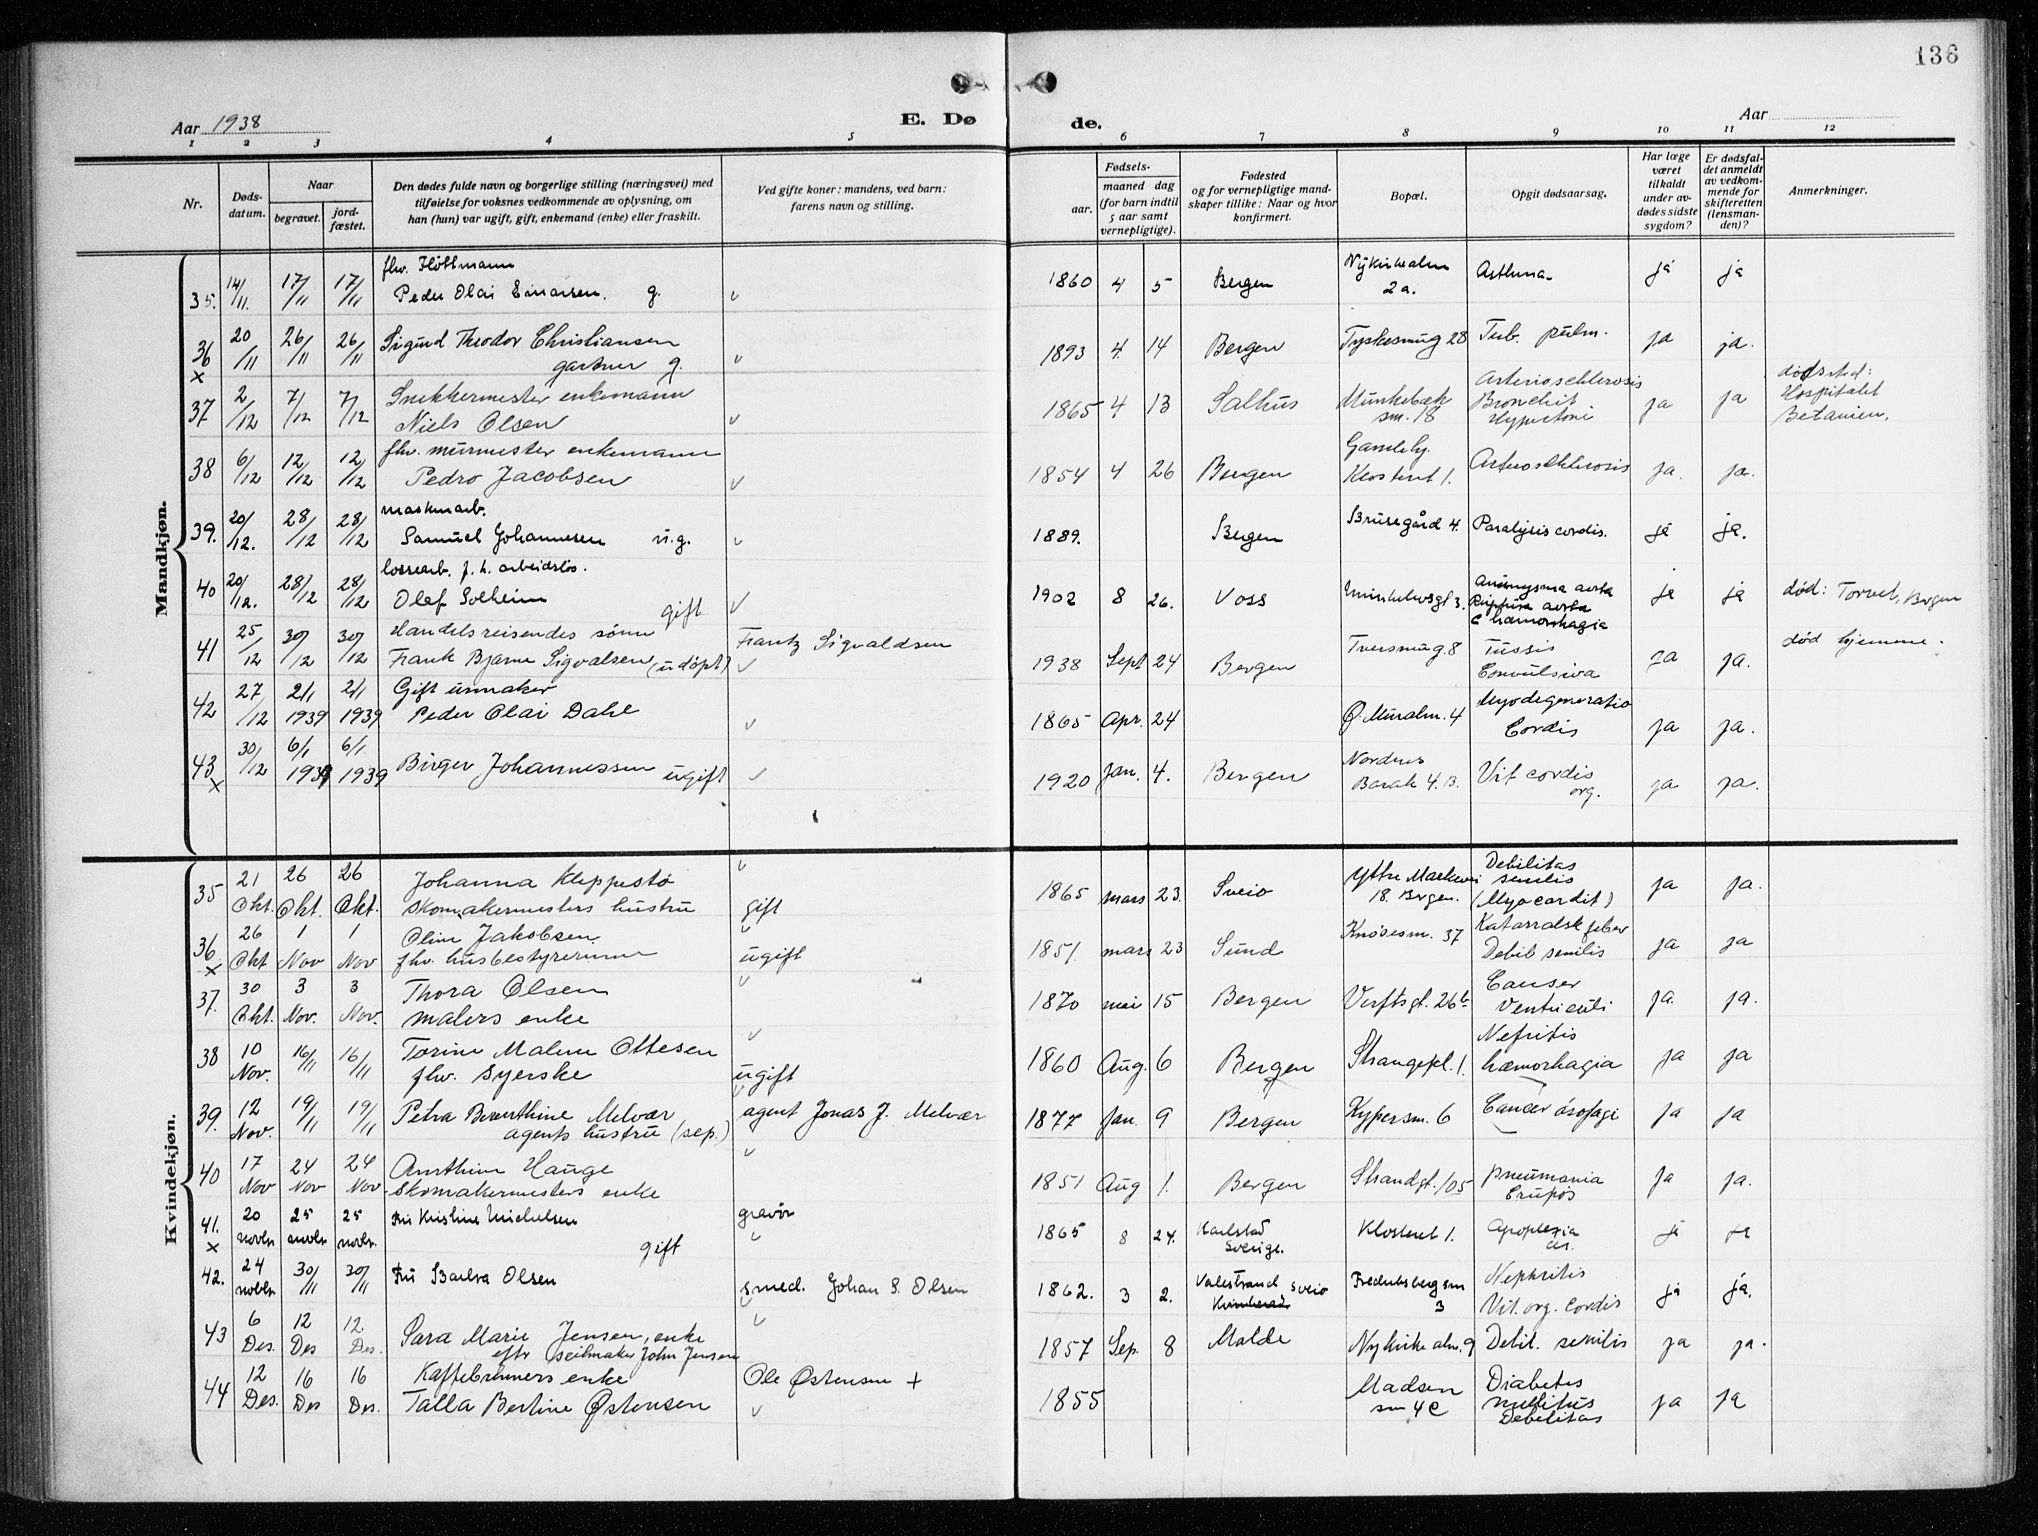 136
Aar 1938
E. Dø
de.
Aar
1 2 3 4 5 6 7 8 9 10 11 12
Nr.
Døds-
datum.
Naar
begravet.
jord-
fæstet.
Den dødes fulde navn og borgerlige stilling (næringsvei) med
tilføielse for voksnes vedkommende av oplysning, om
han (hun) var ugift, gift, enkemand (enke) eller fraskilt.
Ved gifte koner: mandens, ved barn:
farens navn og stilling.
Fødsels-
aar.
maaned dag
(for barn indtil
5 aar samt
vernepligtige).
Fødested
og for vernepligtige mand-
skaper tillike: Naar og hvor
konfirmert.
Bopæl.
Opgit dødsaarsag.
Har læge
været
tilkaldt
under av-
dødes sidste
sygdom?
Er dødsfal-
det anmeldt
av vedkom-
mende for
skifteretten
(lensman-
den)?
Anmerkninger.
Mandkjøn.
35. 14/11. 17/11 17/11 fhv. Fløttmann
Peder Olai Einarsen. g.
1860 4 5 Bergen Nykirkealm 2a. Asthma ja ja
36 x 20/11 26/11 26/11 Sigurd Theodor Christiansen
gartner g.
1893 4. 14 Bergen Tyskesmug 28 Tub. pulm. ja ja.
37 2/12 7/12 7/12 Snekkermester enkemann
Niels Olsen
1865 4 13 Salhus Munkebæk sm. 18 Arterioschlerosis
Bronchit
Hypertoni ja ja dødssted:
Hospitalet
Betanien.
38 6/12 12/12 12/12 fhv. murmester enkemann
Pedro Jacobsen
1854 4 26 Bergen Gamleby. Klosteret 1. Arterioschlerosis ja. ja.
39. 20/12. 28/12 28/12 maskinarb.
Samuel Johannesen u.g.
1889. Bergen Brusegård 4. Paralysis cordis. ja ja.
40 20/12. 28/12 28/12 lossearb. f. t. arbeidsløs.
Olaf Solheim gift
1902 8 26. Voss 3. aorta
aorta
hæmorrhagia ja ja død: Torvet, Bergen
41 25/12 30/12 30/12 Handelsreisendes sønn
Frank Bjarne Sigvalsen (udøpt) Frantz Sigvaldsen
1938 Sept 24 Bergen Tversmug. 8 Tussis
Convulsiva ja ja. død hjemme.
42 27/12 2/1 1939 2/1 1939 Gift urmaker
Peder Olai Dahl
1865 Apr. 24 Ø. Muralm. 4 Myodegeneratio
Cordis ja ja.
43 x 30/12 6/1 1939 6/1 1939 Birger Johannessen ugift
1920 Jan. 4. Bergen Nordnes
Barak 4. B. Vit cordis
org. ja ja.
Kvindekjøn.
35 21 Okt. 26 Okt. 26 Okt. Johanna Kleppestø
skomakermesters hustru gift
1865 mars 23. Sveio Ytre Markevei
18. Bergen. Debilitas
senilis
(Myocardit) ja ja.
36 x 26 Okt 1 Nov 1 Nov Oline Jakobsen.
fhv. husbestyrerinne ugift
1851. mars 23 Sund Knøsesm. 37 Katarralsk feber
Debil senilis ja ja
37. 30 Okt. 3 Nov. 3 Nov. Thora Olsen
malers enke
1870 mai 15 Bergen Verftsgt. 26b Canser
Ventriculi ja. ja.
38 10 Nov. 16/11 16/11 Torine Malene Ottesen
fhv. syerske ugift
1860 Aug. 6 Bergen Strangepl. 1. Nefritis
hæmorhagia ja ja
39. 12 Nov. 19/11 19/11 Petra Berenthine Melvær
agents hustru (sep.) agent Jonas J. Melvær
1877 Jan. 9 Bergen Kypersm. 6 Cancer øsofagi ja ja
40 17 Nov 24 Nov 24 Nov. Anthine Hauge
Skomakermesters enke
1851 Aug 1. Bergen Strandgt. 105 Pneumania
Crupøs ja ja.
41. x 20 novbr. 25 novbr. 25 novbr. Fru Kristine Michelsen
gift gravør
1865 8 24. Karlstad
Sverige. Klosteret 1. Apoplexia ja ja
42. 24 novbr. 30/11 30/11 Fru Barbra Olsen smed. Johan S. Olsen
1862. 3 2. Valestrand Sveio
Fredriksberg sm
3 Nephritis
Vit. org. cordis ja ja.
43 6 Des. 12 Des 12. Des. Sara Marie Jensen, enke
eftr seilmaker John Jensen
1857 Sep. 8 Molde Nykirke alm. 9 Debil. senilis ja ja.
44 12 Des. 16 Des 16 Des. Kaffebrenners enke
Talla Bertine Østensen Ole Østensen +
1855 Madsen
sm 4c Diabetes
mellitus
Debilitas ja ja